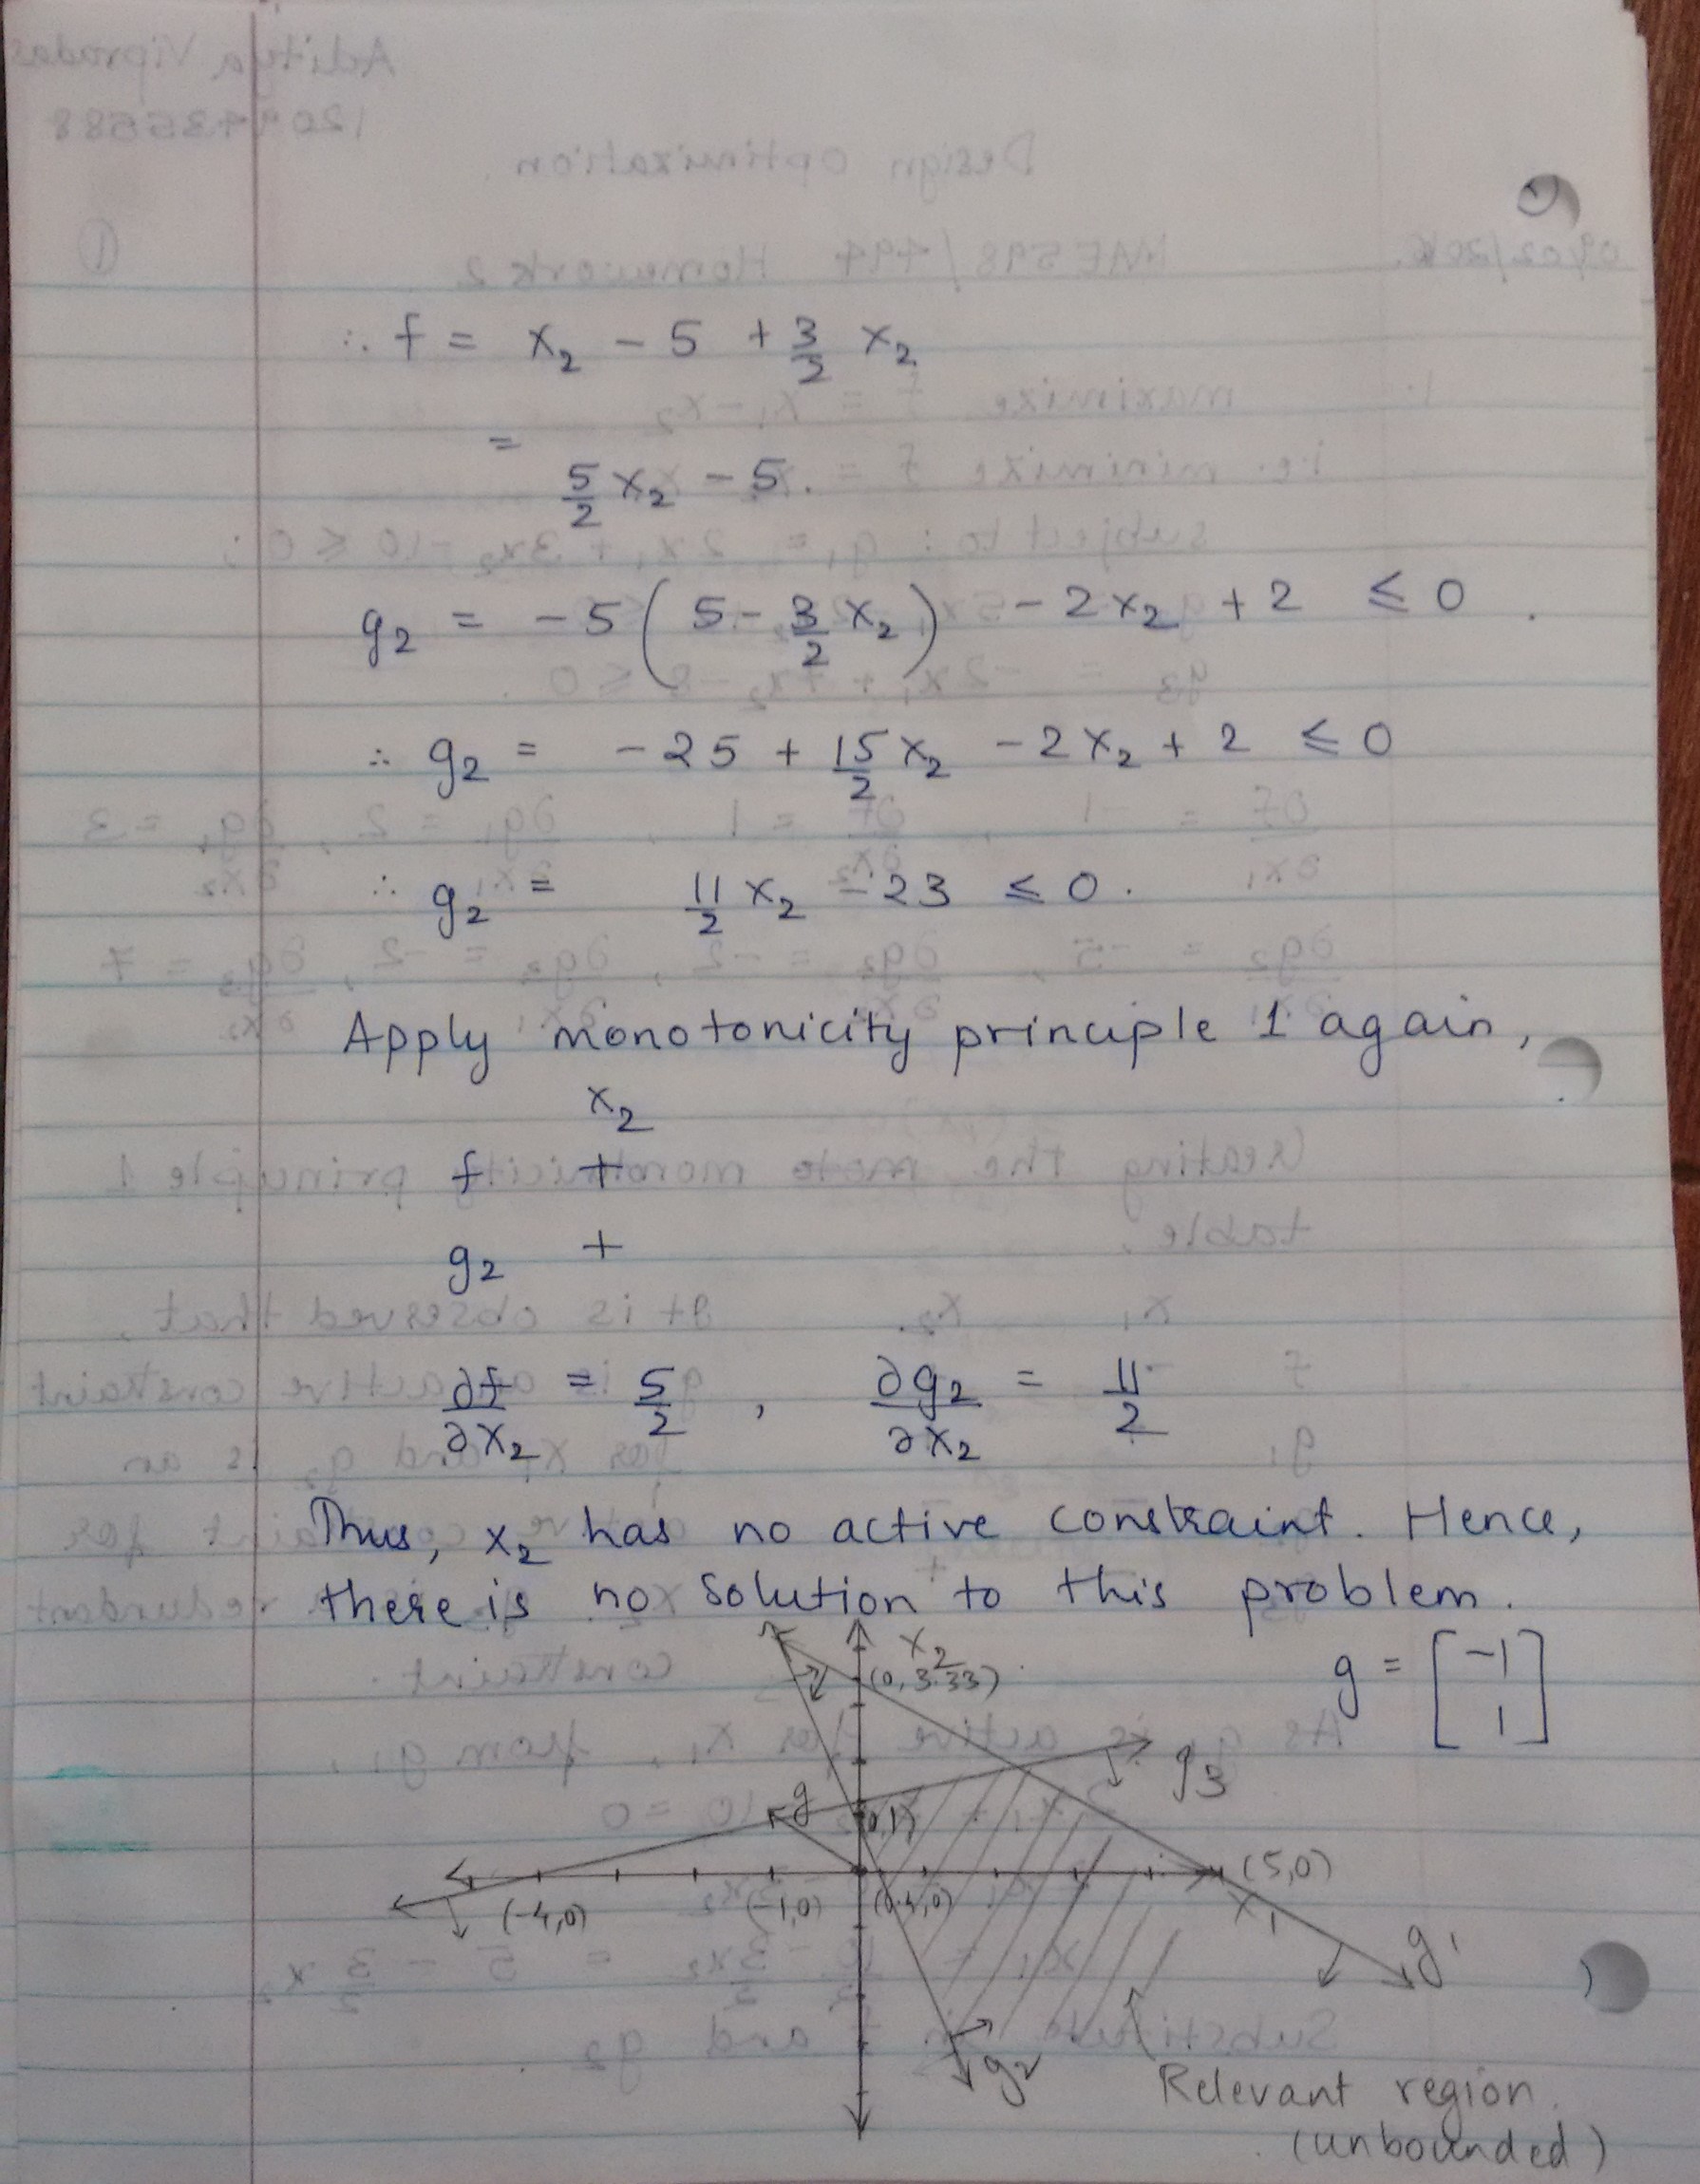 ∴ f = x₂ - 5 + 3/2 x₂
=
5/2 x₂ - 5.
g₂ = -5(5 - 3/2 x₂) - 2x₂ + 2 ≤ 0
∴ g₂ = -25 + 15/2 x₂ - 2x₂ + 2 ≤ 0
∴ g₂ = 11/2 x₂ - 23 ≤ 0.
Apply monotonicity principle 1 again,
x₂
f +
g₂ +
∂f/∂x₂ = 5/2 , ∂g₂/∂x₂ = 11/2
Thus, x₂ has no active constraint. Hence,
there is no solution to this problem.
x₂
(0, 3.33)
g = [-1 1]
g₃
g
(0,1)
(5,0)
(-4,0)
(-1,0)
(0.4,0)
x₁
g₁
g₂
Relevant region
(unbounded)